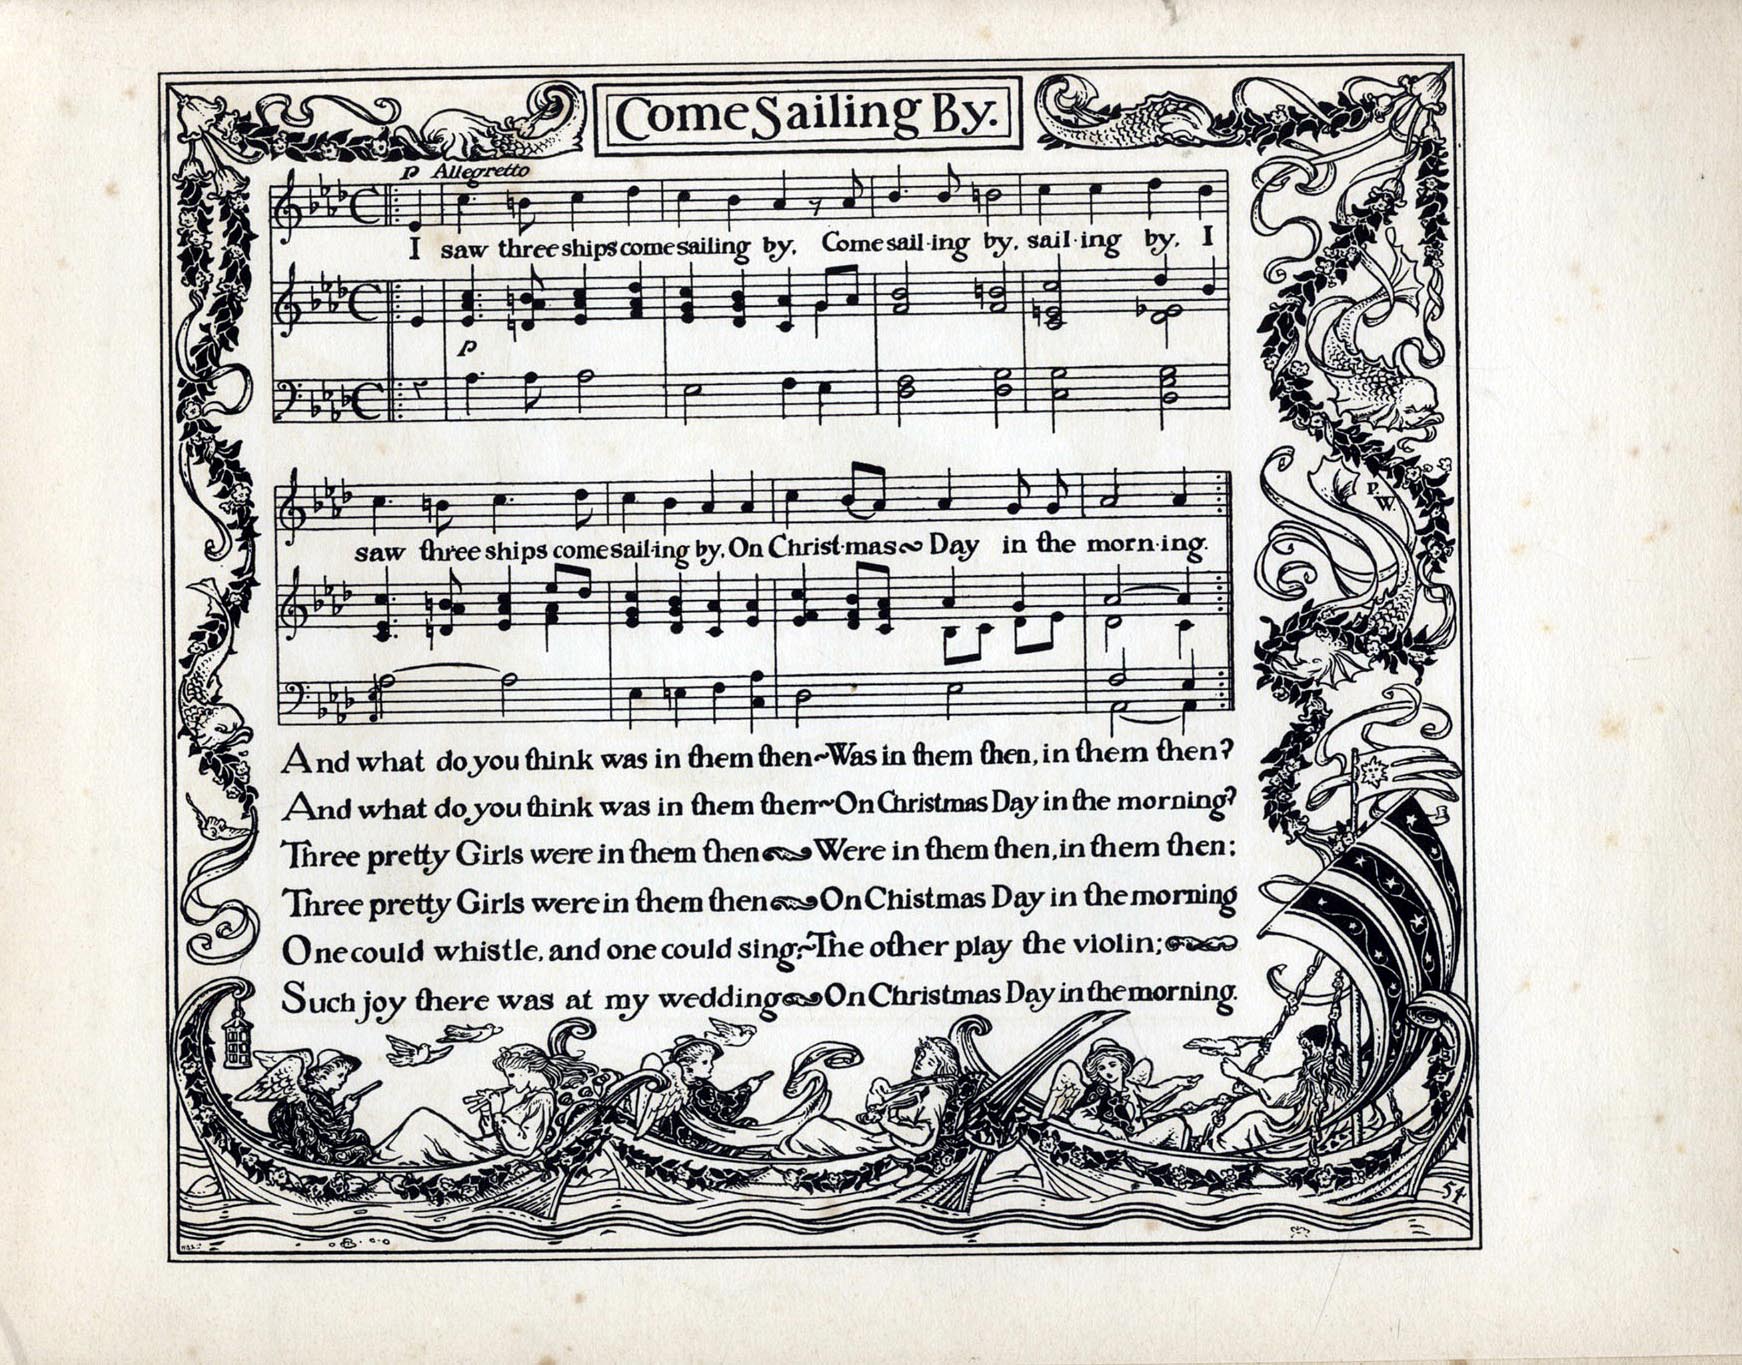 Come Sailing By.
p Allegretto
I saw three ships come sailing by, Come sail·ing by, sail·ing by, I
p
saw three ships come sail·ing by, On Christ·mas~ Day in the morn·ing.
P.
W.
And what do you think was in them then~Was in them then, in them then?
And what do you think was in them then~On Christmas Day in the morning?
Three pretty Girls were in them then~Were in them then, in them then:
Three pretty Girls were in them then~On Chistmas Day in the morning
One could whistle, and one could sing;~The other play the violin;
Such joy there was at my wedding~On Christmas Day in the morning.
54